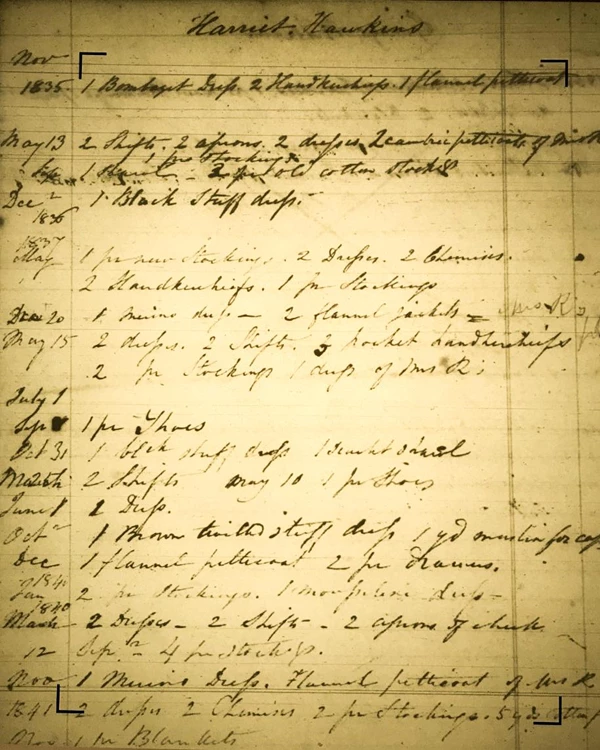 Harriet Hawkins
Nov
1835. 1 Bombazet Dress. 2 Handkerchiefs. 1 flannel petticoat
May 13 2 Shifts. 2 aprons. 2 dresses, 2 cambric petticoats of Mrs R
1 pr Stockings
Sep 1 Shawl - 2 pr old cotton stock
Dec 1 Black Stuff dress.
1836
1837
May 1 pr new Stockings. 2 Dresses. 2 Chemises.
2 Handkerchiefs. 1 pr Stockings
Dec 20 1 merino dress - 2 flannel jackets - Mrs R's
May 15 2 dresses. 2 Shifts. 3 pocket handkerchiefs
2 pr Stockings 1 dress of Mrs R's
July 1
Sep 1 pr Shoes
Oct 31 1 blck stuff dress 1 Scarlet Shawl
March 2 Shifts may 10 1 pr Shoes
June 1 2 Dress.
Oct 1 Brown twilld stuff dress 1 yd muslin for cap
Dec 1 flannel petticoat 2 pr drawers.
1840
Jan 2 pr Stockings. 1 dress -
1840
March - 2 Dresses - 2 Shifts - 2 aprons of check.
12 Sep 4 pr stockgs.
Nov 1 Merino Dress. Flannel petticoat of Mrs R.
1841 2 dresses 2 Chemises 2 pr Stockings. 5 yds cotton
Nov 1 pr Blankets